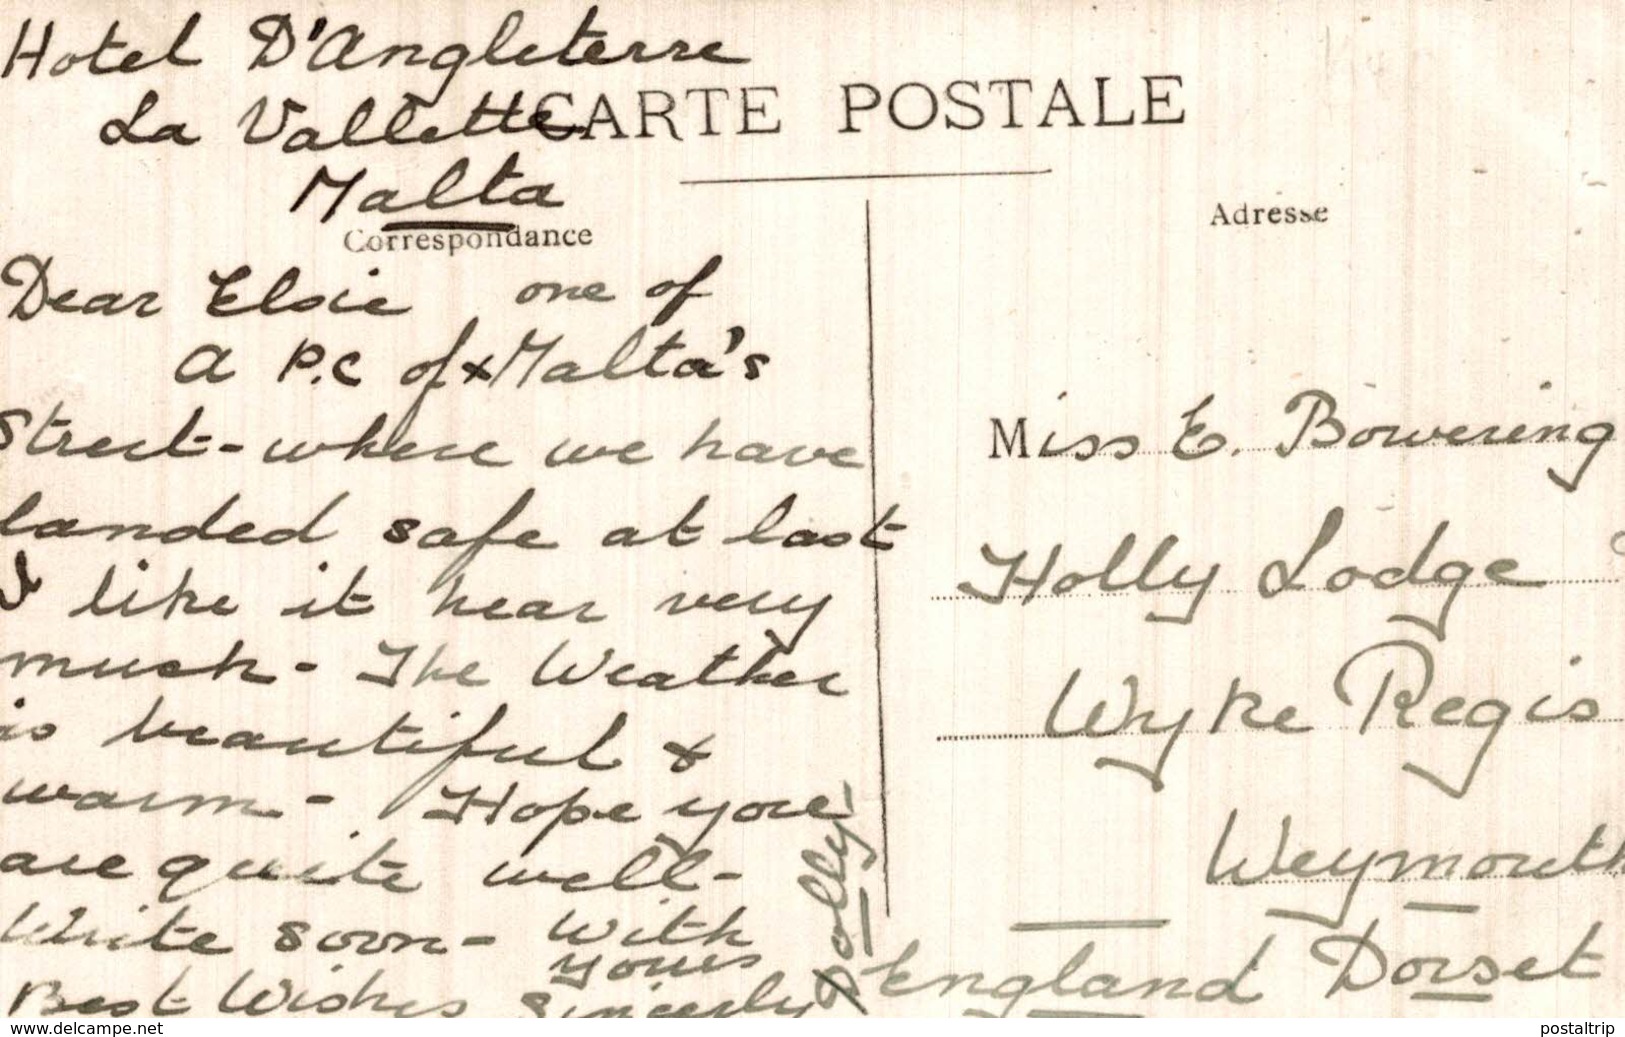 Hotel D'Angleterre
La Vallette
Malta
CARTE POSTALE
Correspondance
Adresse
Dear Elsie one of
A P.C of x Malta's
Street - where we have
landed safe at last
I like it hear very
much - The Weather
is beautiful &
warm - Hope you
are quite well -
Write soon - With
Best Wishes yours
Sincerely
Dolly
Miss E. Bowering
Holly Lodge
Wyke Regis
Weymouth
England Dorset
www.delcampe.net
postaltrip